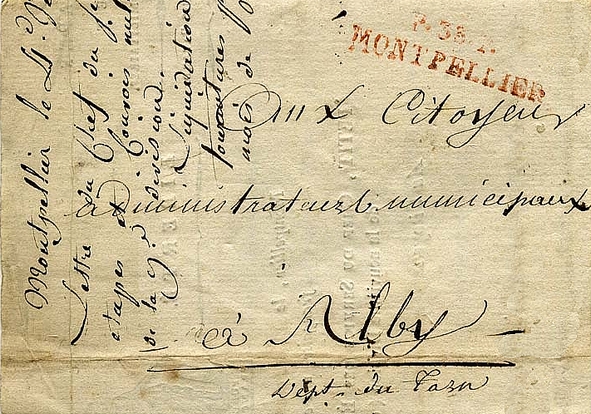 P. 33. P.
MONTPELLIER
Aux Citoyens
administrateurs municipaux
à Alby
Dept. du Tarn
Montpellier le 4
Lettre du Chef du
étapes et Convois
de la 9e division.
Liquidation
fournitures
mois de